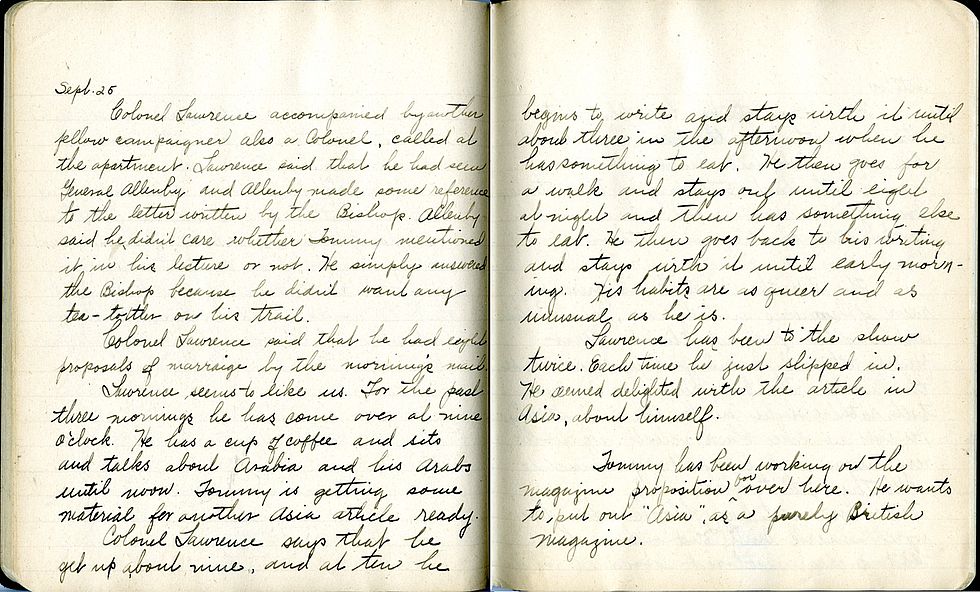 Sept. 25
Colonel Lawrence accompanied by another
fellow campaigner also a Colonel, called at
the apartment. Lawrence said that he had seen
General Allenby and Allenby made some reference
to the letter written by the Bishop. Allenby
said he didn't care whether Tommy mentioned
it in his lecture or not. He simply answered
the Bishop because he didn't want any
tea-totter on his trail.
Colonel Lawrence said that he had eight
proposals of marraige by the morning's mail.
Lawrence seems to like us. For the past
three mornings he has come over at nine
o'clock. He has a cup of coffee and sits
and talks about Arabia and his Arabs
until noon. Tommy is getting some
material for another Asia article ready.
Colonel Lawrence says that he
get up about nine, and at ten he
begins to write and stays with it until
about three in the afternoon when he
has something to eat. He then goes for
a walk and stays out until eight
at night and then has something else
to eat. He then goes back to his writing
and stays with it until early morn-
ing. His habits are as queer and as
unusual as he is.
Lawrence has been to the show
twice. Each time he just slipped in.
He seemed delighted with the article in
Asia, about himself.
Tommy has been working on the
magazine proposition over here. He wants
to put out "Asia" as a purely British
magazine.